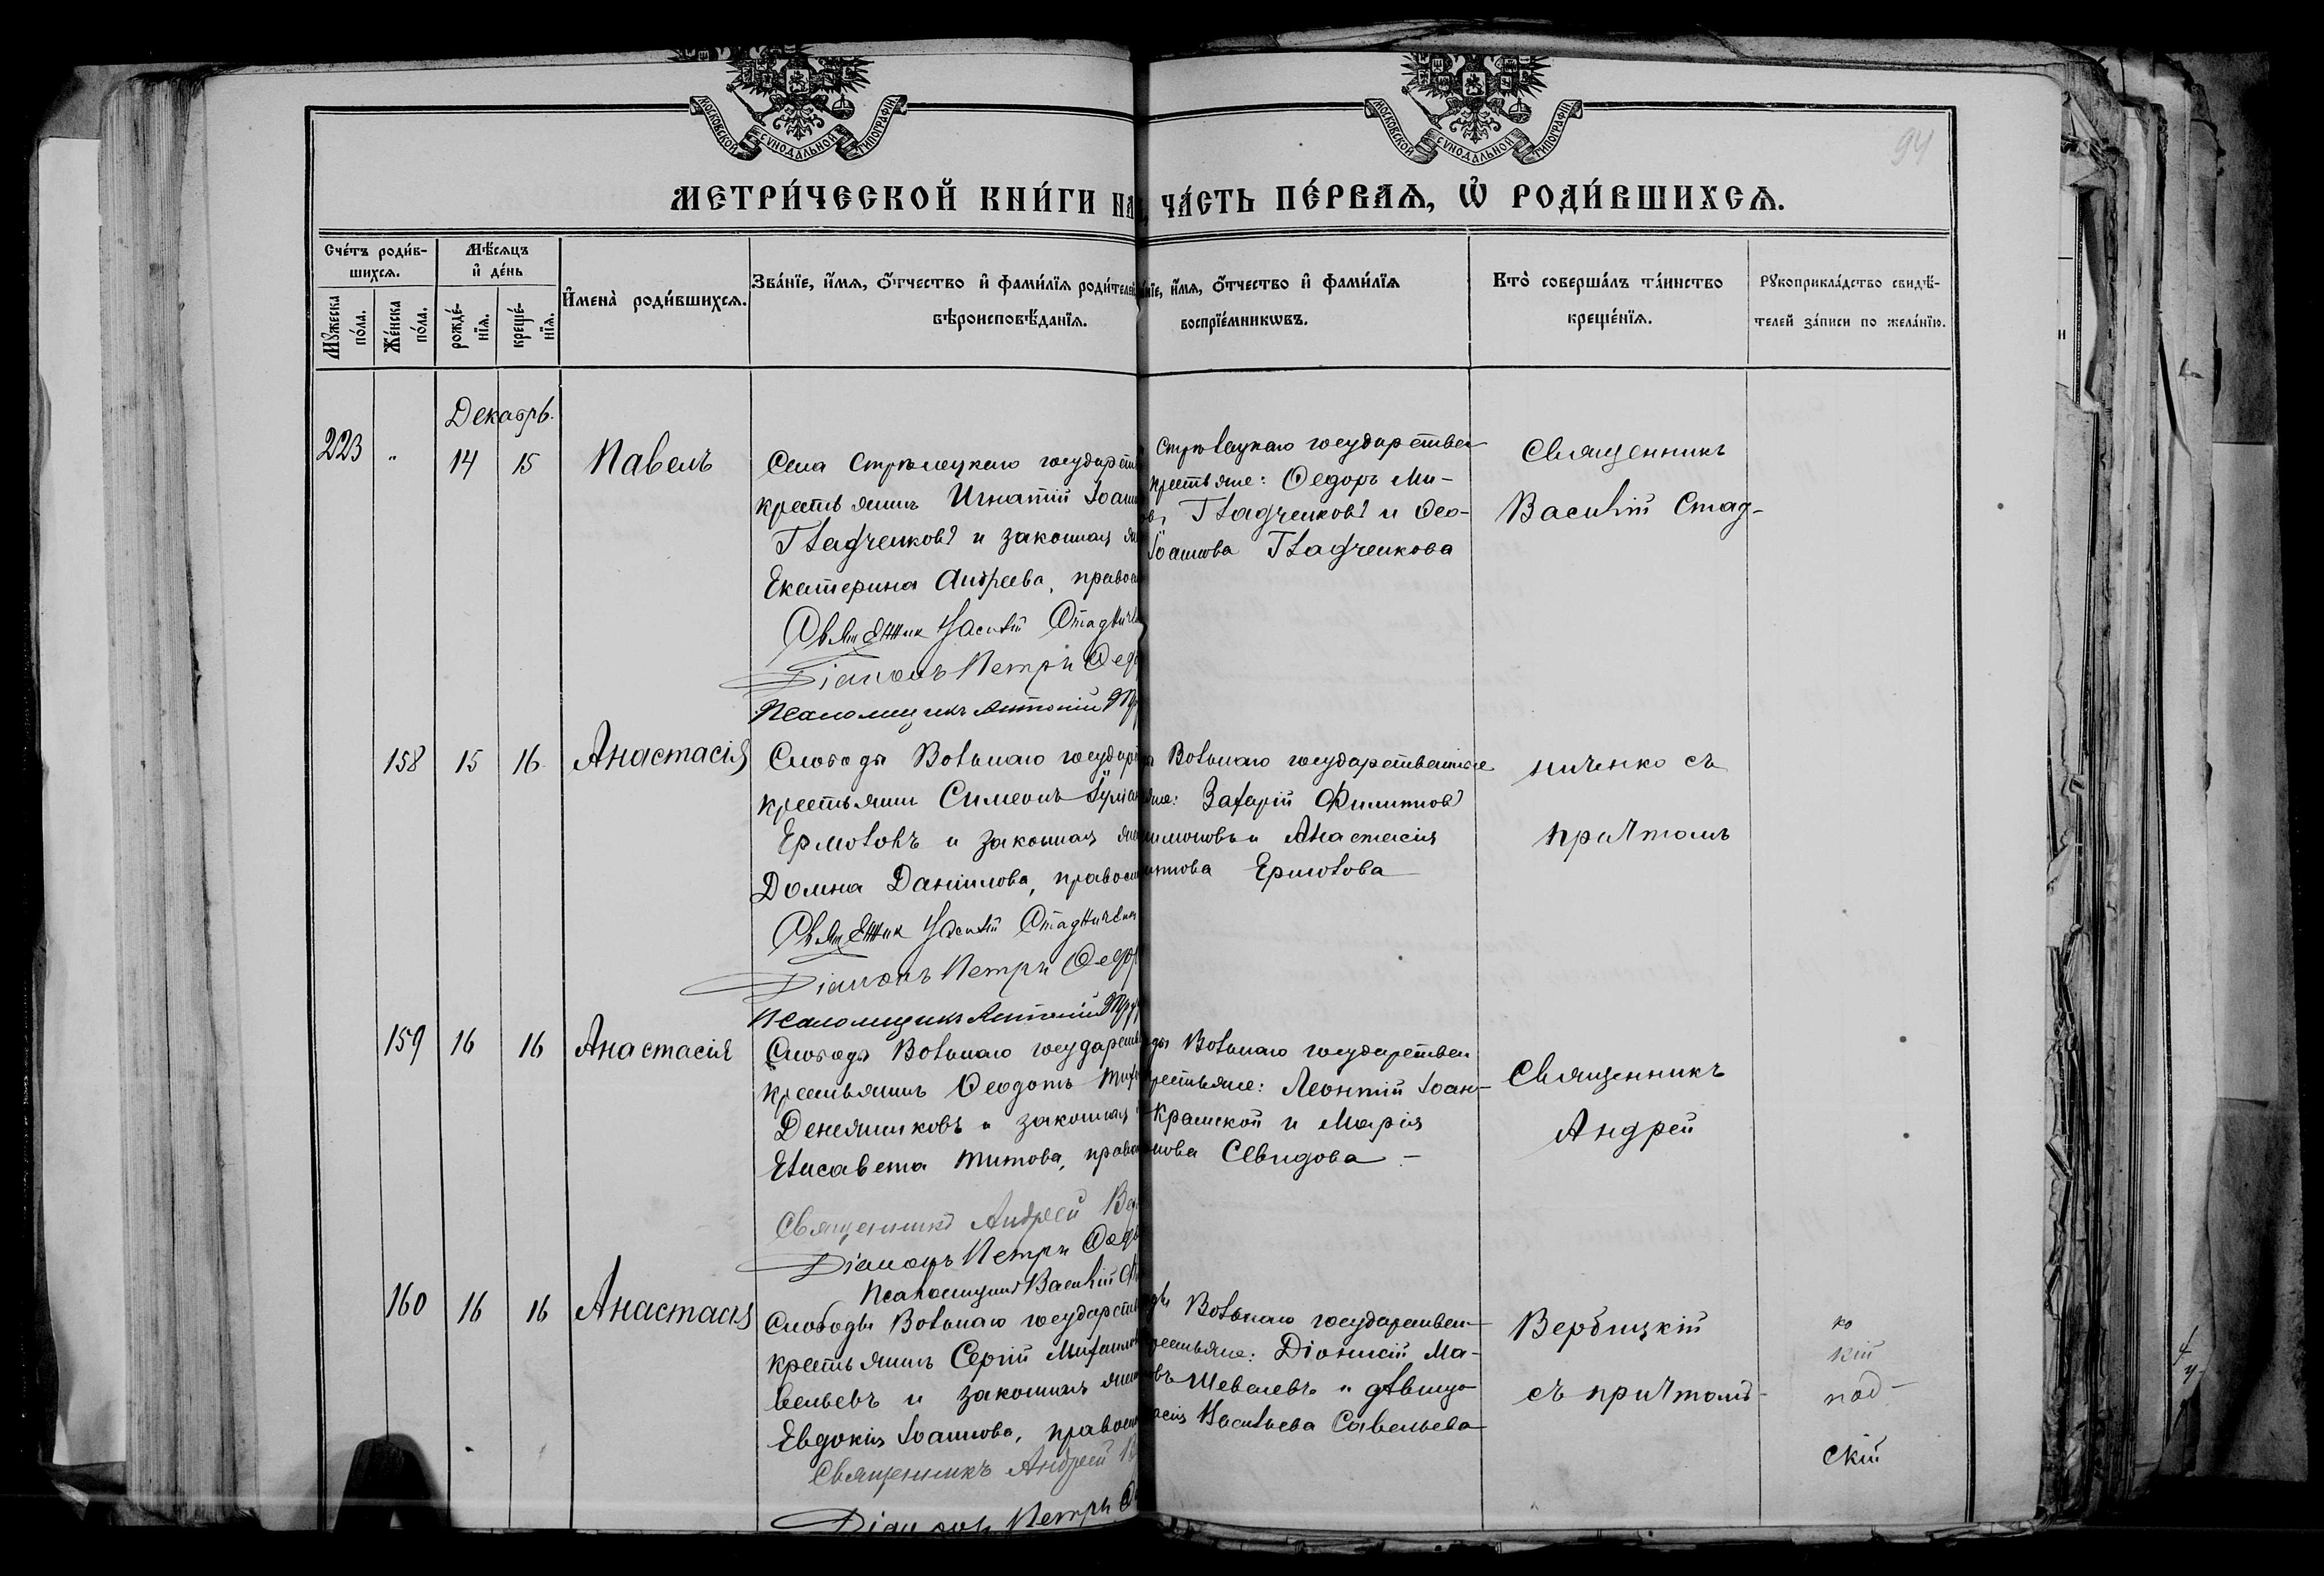 МОСКОВСКОЙ СѴНОДАЛЬНОЙ ТИПОГРАФІИ
МОСКОВСКОЙ СѴНОДАЛЬНОЙ ТИПОГРАФІИ
94
МЕТРИ́ЧЕСКОЙ КНИ́ГИ НА
ЧА́СТЬ ПЕ́РВАѦ, Ѡ҆ РОДИ́ВШИХСѦ.
Сче́тъ роди́в-
шихсѧ.
Мѣ́сѧцъ
и҆ де́нь
Мꙋ́жеска
по́ла.
Же́нска
по́ла.
рожде́-
нїѧ.
креще́-
нїѧ.
И҆мена̀ роди́вшихсѧ.
Зва́нїе, и҆́мѧ, ѻ҆́тчество и҆ фами́лїѧ роди́телей
вѣроисповѣ́данїѧ.
и҆́мѧ, ѻ҆́тчество и҆ фами́лїѧ
воспрїе́мникѡвъ.
Кто̀ соверша́лъ та́инство
креще́нїѧ.
Рꙋкоприкла́дство свидѣ́-
телей за́писи по жела́нїю.
Декабрь.
223 " 14 15 Павелъ
Села Стрѣлецкаго государств
крестьянинъ Игнатій Іоанн
Гладченковъ и законная
Екатерина Андреева, правос
Священник Василій Стадниче
Діаконъ Петръ Федо
Псаломщикъ Антоній
Стрѣлецкаго государствен
крестьяне: Федоръ Ми-
Гладченковъ и Фео-
Іоаннова Гладченкова
Священникъ
Василій Стад-
158 15 16 Анастасія
Слободы Вольнаго государ
крестьянин Симеонъ
Ермоловъ и законная
Домна Даніилова, правосл
Священник Василій Стадничен
Діаконъ Петръ Федор
Псаломщикъ Антоній
Вольнаго государственные
Захарій Филиппов
и Анастасія
Ермолова
ниченко съ
причтомъ
159 16 16 Анастасія
Слободы Вольнаго государств
крестьянинъ Феодотъ
Денежниковъ и законная
Елисавета Титова, право
Священникъ Андрей Вер
Діаконъ Петръ Федо
Псаломщикъ Василій
Вольнаго государствен
крестьяне: Леонтій Іоан-
и Марія
Севидова
Священникъ
Андрей
160 16 16 Анастасія
Слободы Вольнаго государств
крестьянинъ Сергій Михаило
вельевъ и законная
Евдокія Іоаннова, правосл
Священникъ Андрей
Діаконъ Петръ
Вольнаго государствен-
крестьяне: Діонисій Ма-
Шевелевъ и дѣвица
Васильева Савельева
Вербицкій
съ причтомъ
ко
кій
под-
скій